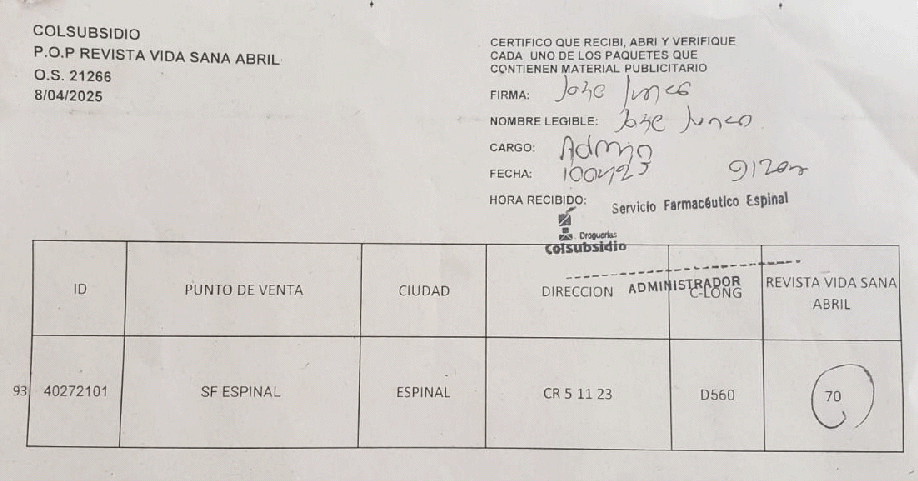 COLSUBSIDIO
P.O.P REVISTA VIDA SANA ABRIL
O.S. 21266
8/04/2025
CERTIFICO QUE RECIBI, ABRI Y VERIFIQUE
CADA UNO DE LOS PAQUETES QUE
CONTIENEN MATERIAL PUBLICITARIO
FIRMA: Joze Junco
NOMBRE LEGIBLE: Joze Junco
CARGO: Admin
FECHA:
HORA RECIBIDO:
Servicio Farmacéutico Espinal
Droguerías
Colsubsidio
ADMINISTRADOR
ID PUNTO DE VENTA CIUDAD DIRECCION C-LONG REVISTA VIDA SANA
ABRIL
93 40272101 SF ESPINAL ESPINAL CR 5 11 23 D560 70